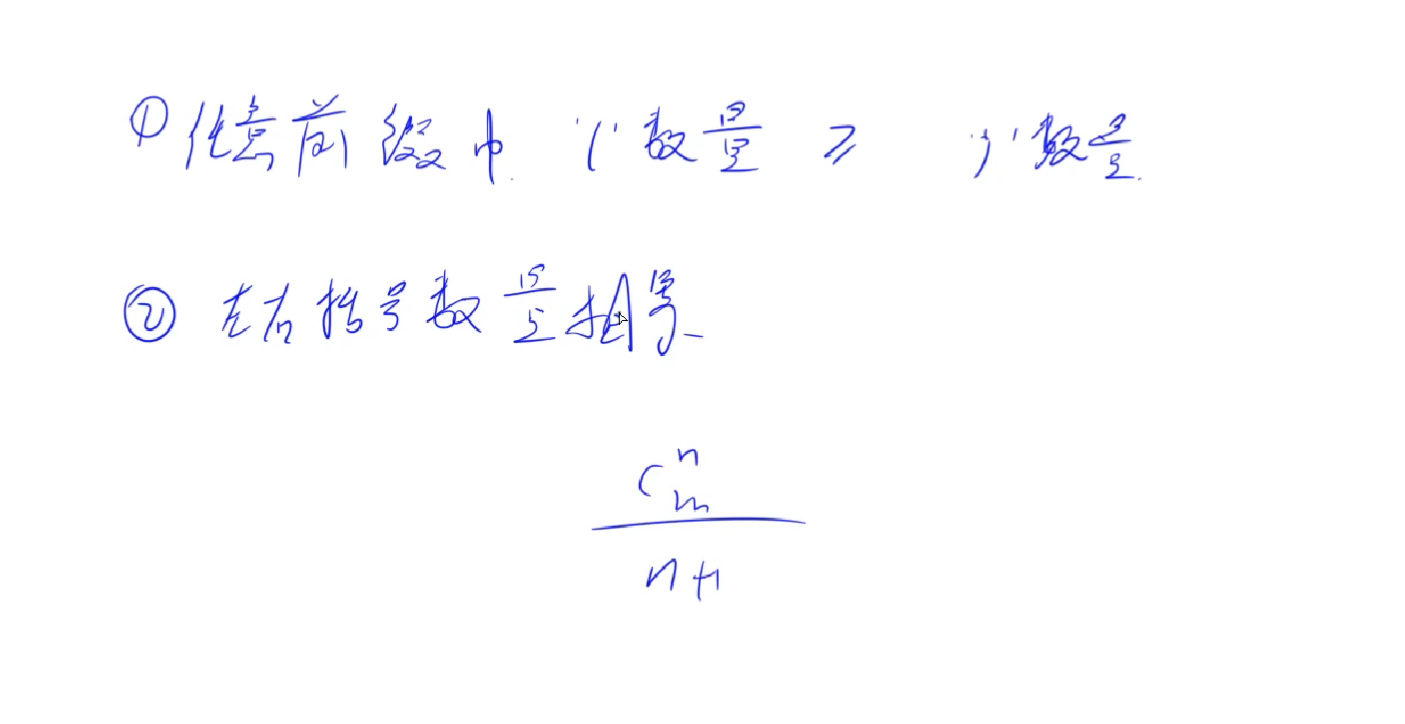 ① 任意前缀中 '(' 数量 ≥ ')' 数量
② 左右括号数量相等
C_{2n}^{n}
n+1